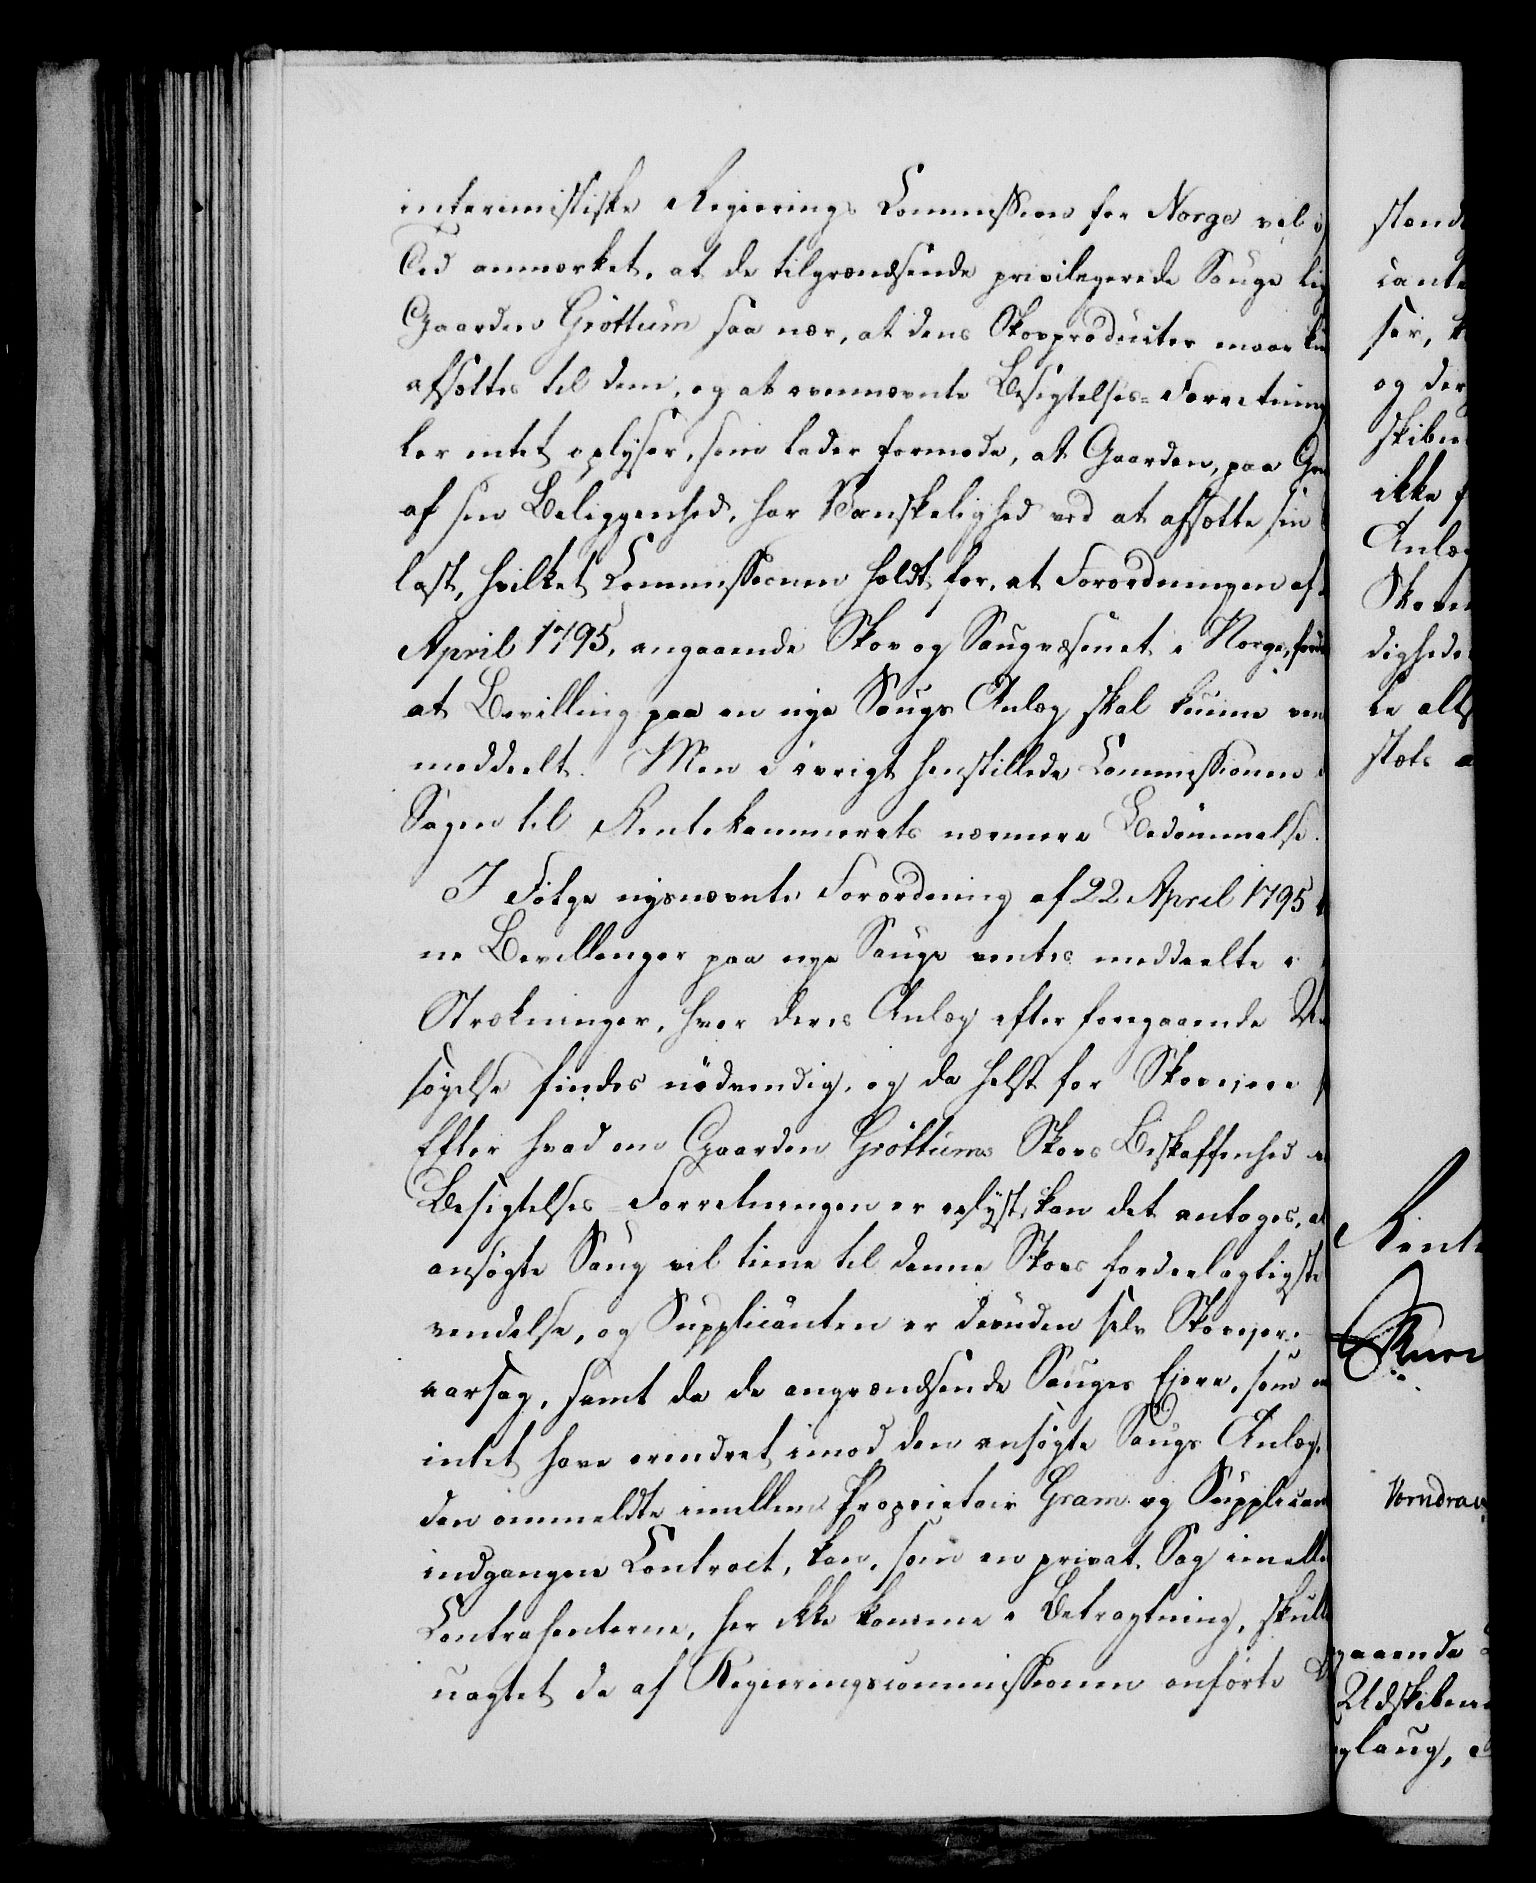 interimistiske Regierings Commission for Norge vel i
Tid anmærket, at de tilgrændsende privilegerede Sauge lig
Gaarden Gröttum saa nær, at dens Skovproducter maae kun
afsættes til dem, og at ovennævnte Besigtelses-Forretning
ler intet oplyser, som lader formode, at Gaarden, paa Gru
af sin Beliggenhed, har Vanskelighed ved at afsætte sin
last, hvilket Commissionen holdt for, at Forordningen af
April 1795, angaaende Skov og Saugvæsenet i Norge, forud
at Bevilling paa en nye Saugs Anlæg skal kunne vor
meddeelt. Men i övrigt henstillede Commissionen
Sagen til Rentekammerets nærmere Bedömmelse.
I Fölge nysnævnte Forordning af 22 April 1795
ne Bevillinger paa nye Sauge ventes meddeelte i
Strækninger, hvor deres Anlæg efter foregaaende Un
søgelse findes nödvendig, og da helst for Skovejere
Efter hvad om Gaarden Gröttums Skovs Beskaffenhed
Besigtelses-Forretningen er oplyst, kan det antages, at
ansøgte Saug vil tiene til denne Skovs fordeelagtigste
vendelse, og Supplicanten er desuden selv Skovejer.
aarsag, samt da de angrændsende Sauges Ejere, som
intet have erindret imod den ansøgte Saugs Anlæg,
den ommeldte imellem Proprietair Gram og Supplican
indgangne Contract, kan, som en privat Sag imelle
Contrahenterne, her ikke komme i Betragtning, skull
uagtet de af Regieringscommissionen anförte
stænd
cante
ser,
og der
skiben
ikke f
Anlæg
Skove
dighede
le alts
stæts a
Rente
Vorndran
gaaende
Udskiben
glaug,